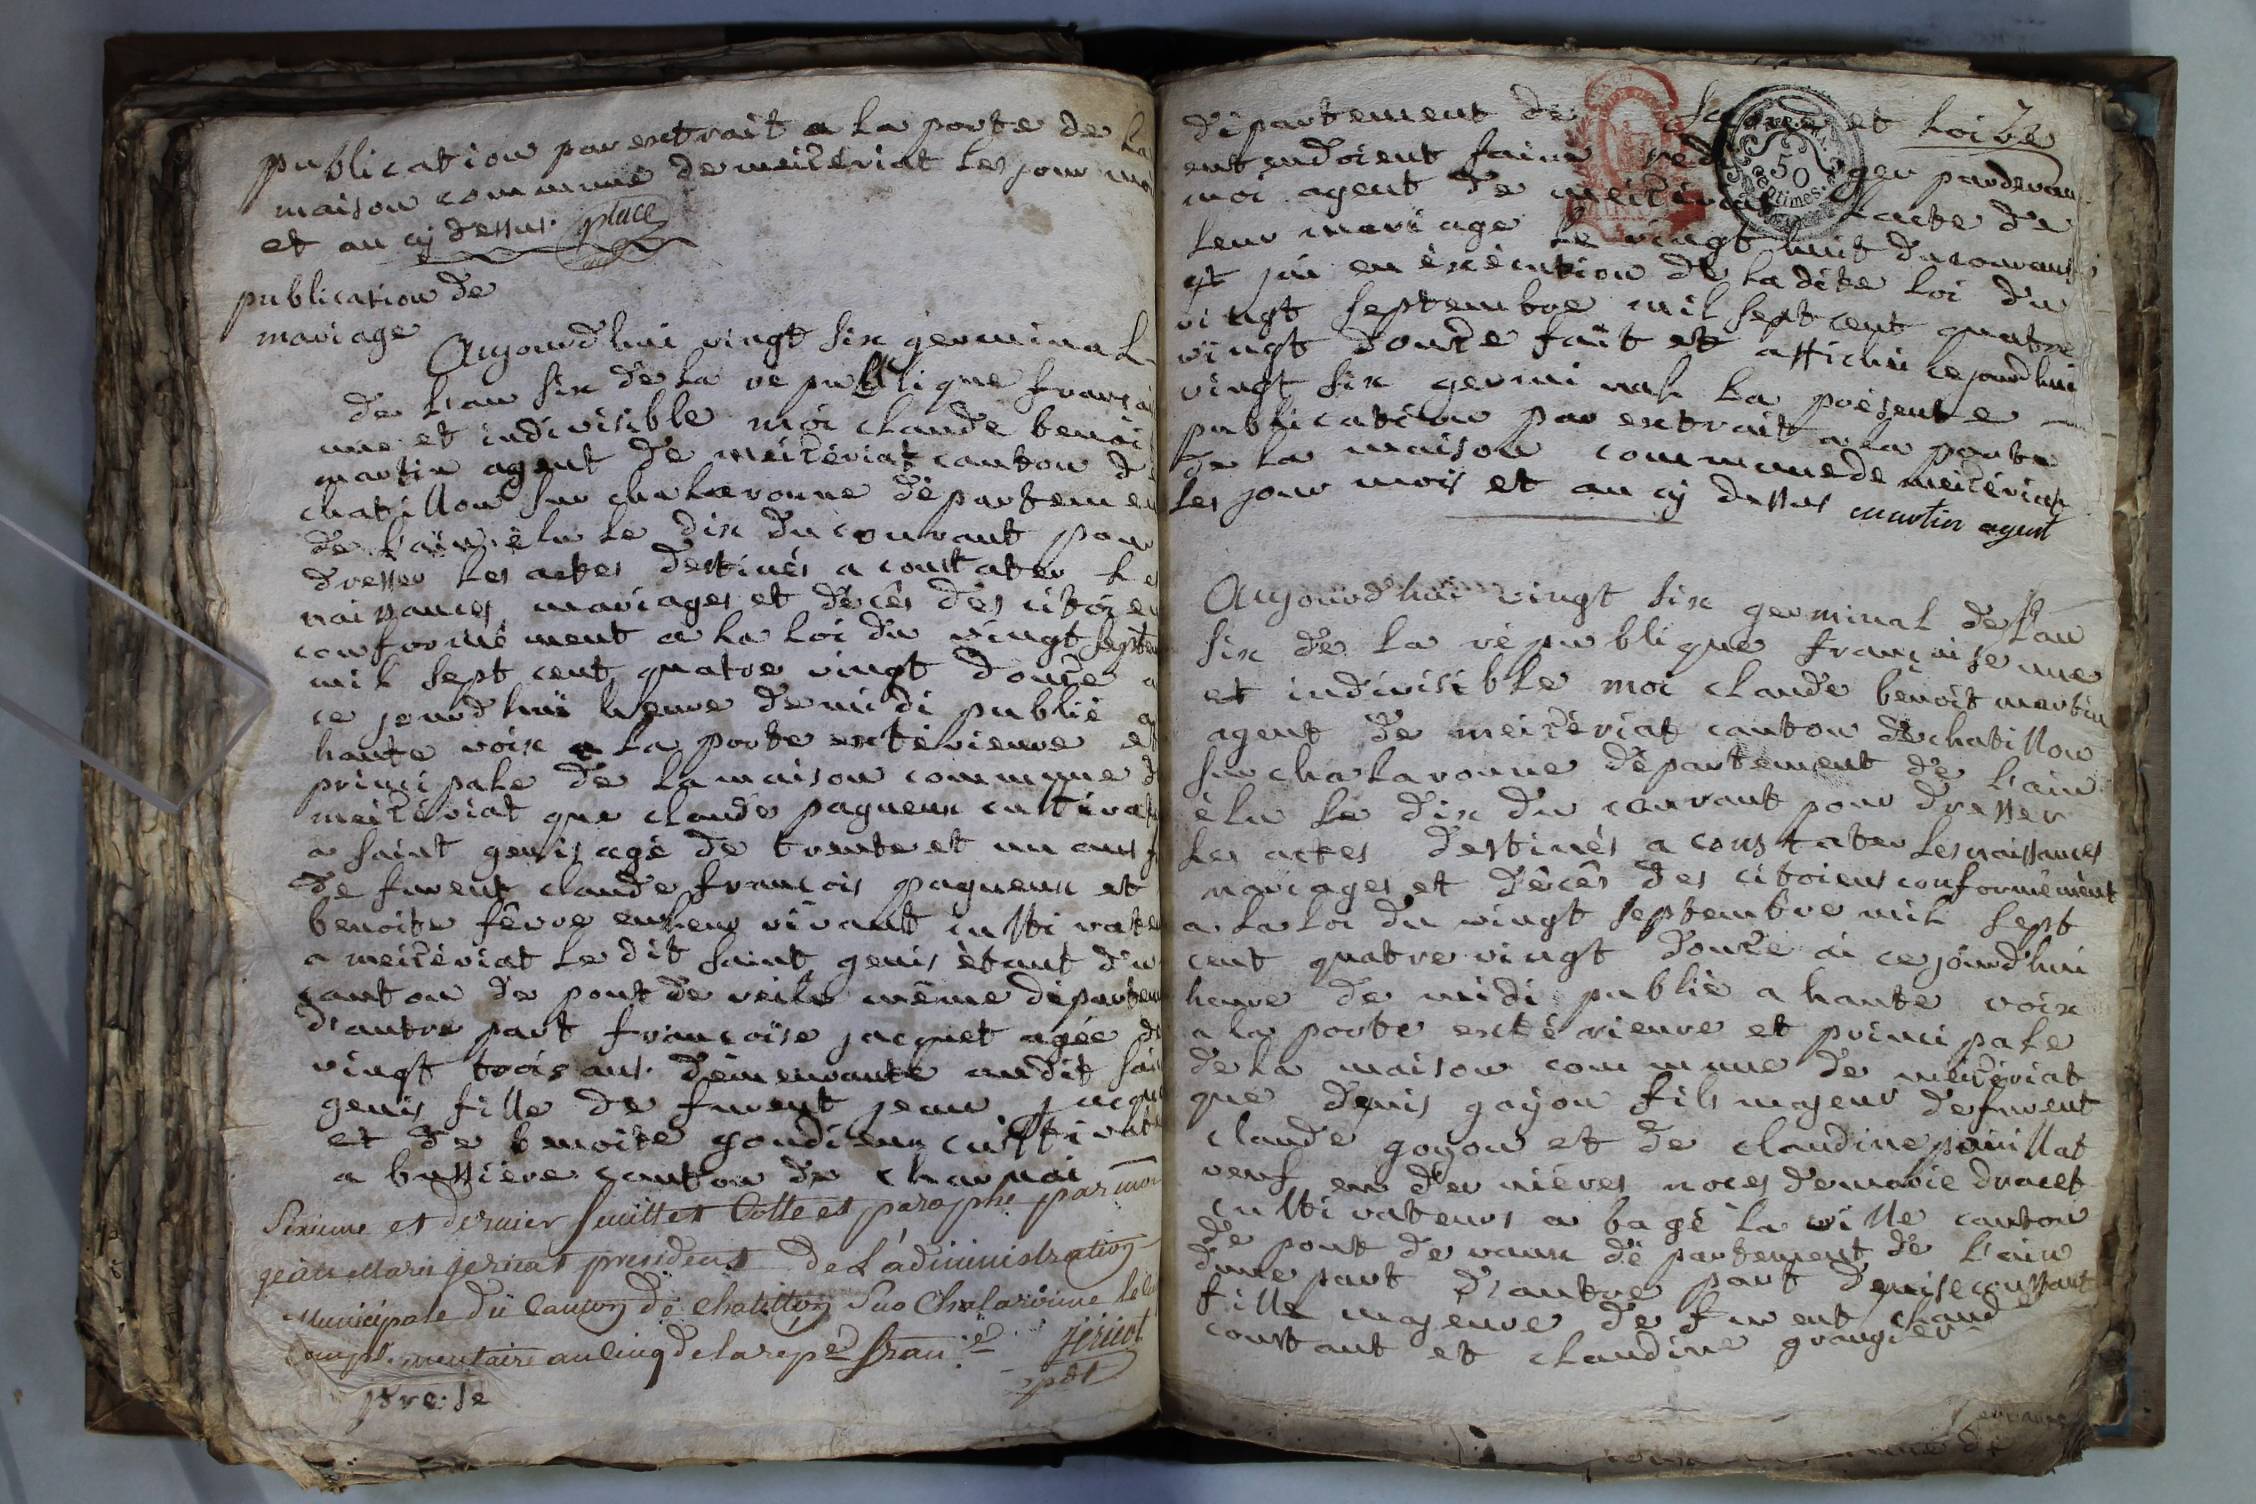 publication par extrait a la porte de la
maison commune de meizériat les jour moi
et an cy dessus. place
publication de
mariage
Aujourd'hui vingt six germinal
de l'an six de la republique françai
une et indivisible moi claude benoi
martin agent de meizériat canton de
chatillon sur chalaronne département
de l'ain élu le dix du courant pour
dresser les actes destinés a constater les
naissances mariages et décés des citoien
conformément a la loi du vingt septem
mil sept cent quatre vingt douze
ce jourd'hui heure de midi publié a
haute voix a la porte extérieure et
principale de la maison commune d
meizériat que claude pagneux cultivat
a saint genis agé de trente et un ans
de furent claude françois pagneux et
benoite fêvre en leur vivant cultivate
a meizériat le dit saint genis étant du
canton de pont de veile même départem
d'autre part françoise jacquet agée de
vingt trois ans demeurante audit sain
genis fille de furent jean jacque
et de benoite gondieux cultivate
a bussiere canton de charnai
Sixieme et dernier feuillet Cotte et paraphé par moi
jean Marie jericot president de L'administration
Municipale du Canton de chatillon sur Chalaronne le
complémentaire an cinq de la rep. fran.
jericot
pdt
département de saone et loire
entendoient faire rediger pardevan
moi agent de meizériat l'acte de
leur mariage le vingt huit du courant
et jai en éxécution de la dite loi du
vingt septembre mil sept cent quatre
vingt douze fait et affiché ce jourd'hui
vingt six germinal la présente
publication par extrait a la porte
de la maison commune de meizériat
les jour mois et an cy dessus martin agent
Aujourd'hui vingt six germinal de l'an
six de la république françoise une
et indivisible moi claude benoit martin
agent de meizériat canton de chatillon
sur chalaronne département de l'ain
élu le dix du courant pour dresser
les actes destinés a constater les naissances
mariages et décês des citoiens conformément
a la loi du vingt septembre mil sept
cent quatre vingt douze ai ce jourd'hui
heure de midi publié a haute voix
a la porte extérieure et principale
de la maison commune de meizériat
que denis goyon fils majeur de furent
claude goyon et de claudine pouillat
veuf en derniéres noces de marie dracet
cultivateurs a bagé la ville canton
de pont de vaux département de l'ain
d'une part d'autre part denise constant
fille majeure de furent claude
constant et claudine grangier